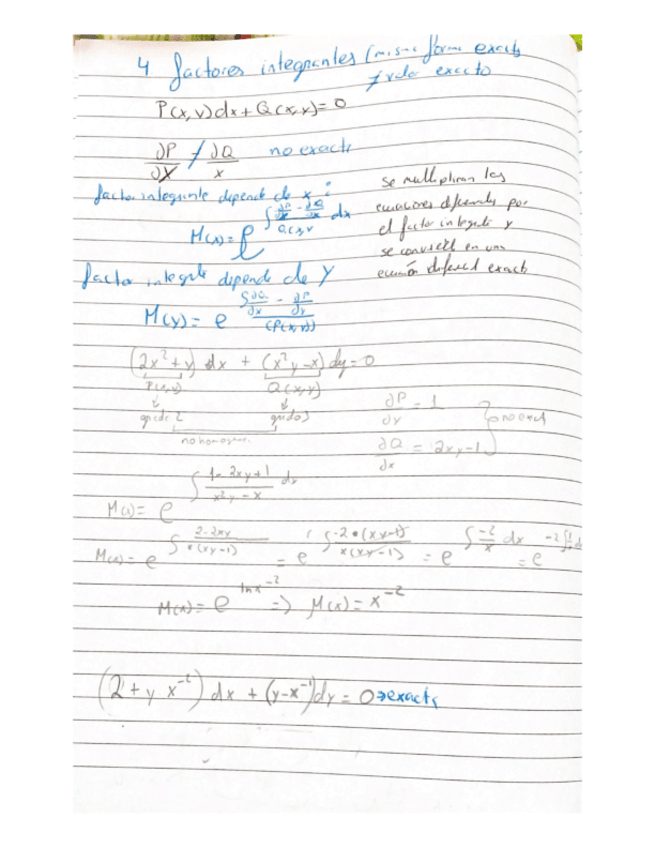 4 factores integrantes (misma forma exacta
≠ valor exacto
P(x,y)dx + Q(x,y) = 0
∂P/∂X ≠ ∂Q/x no exacta
factor integrante depende de x :
M(x) = e^∫ (∂P/∂x - ∂Q/∂x)/Q(x,y) dx
se multiplican las
ecuaciones diferenciales por
el factor integrante y
se convierte en una
ecuación diferencial exacta
factor integrante depende de Y
M(y) = e^∫ (∂Q/∂x - ∂P/∂y)/(P(x,y))
(2x²+y) dx + (x²y-x)dy = 0
P(x,y) Q(x,y)
grado 2 grado 3
no homogen.
∂P/∂y = 1
∂Q/∂x = 2xy-1 } no exact
M(x) = e^∫ (1-2xy+1)/(x²y-x) dx
M(x) = e^∫ (2-2xy)/(x(xy-1)) = e^∫ (-2•(xy-1))/(x(xy-1)) = e^∫ -2/x dx = e^-2∫
M(x) = e^ln x^-2 => M(x) = x^-2
(2+y x^-2) dx + (y-x^-1)dy = 0 → exacta